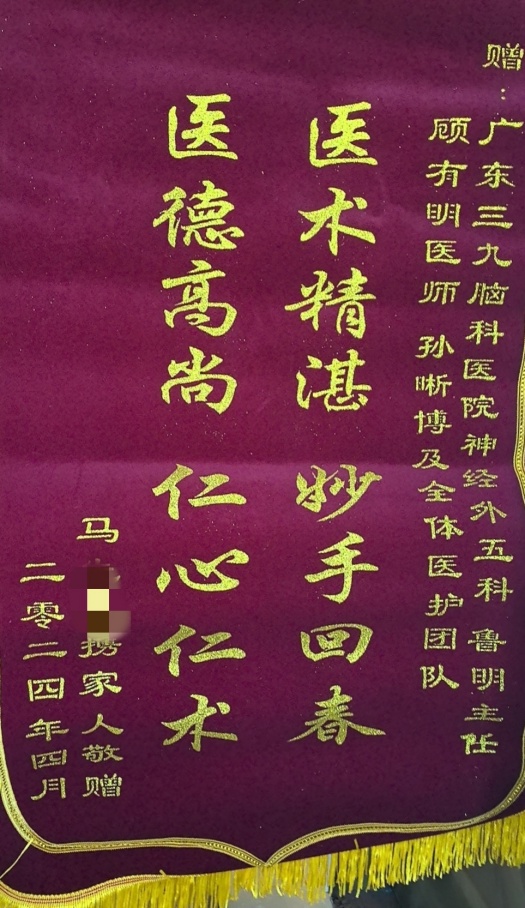 赠：广东三九脑科医院神经外五科 鲁明主任
顾有明医师 孙晰博及全体医护团队
医术精湛 妙手回春
医德高尚 仁心仁术
马 携家人敬赠
二零二四年四月